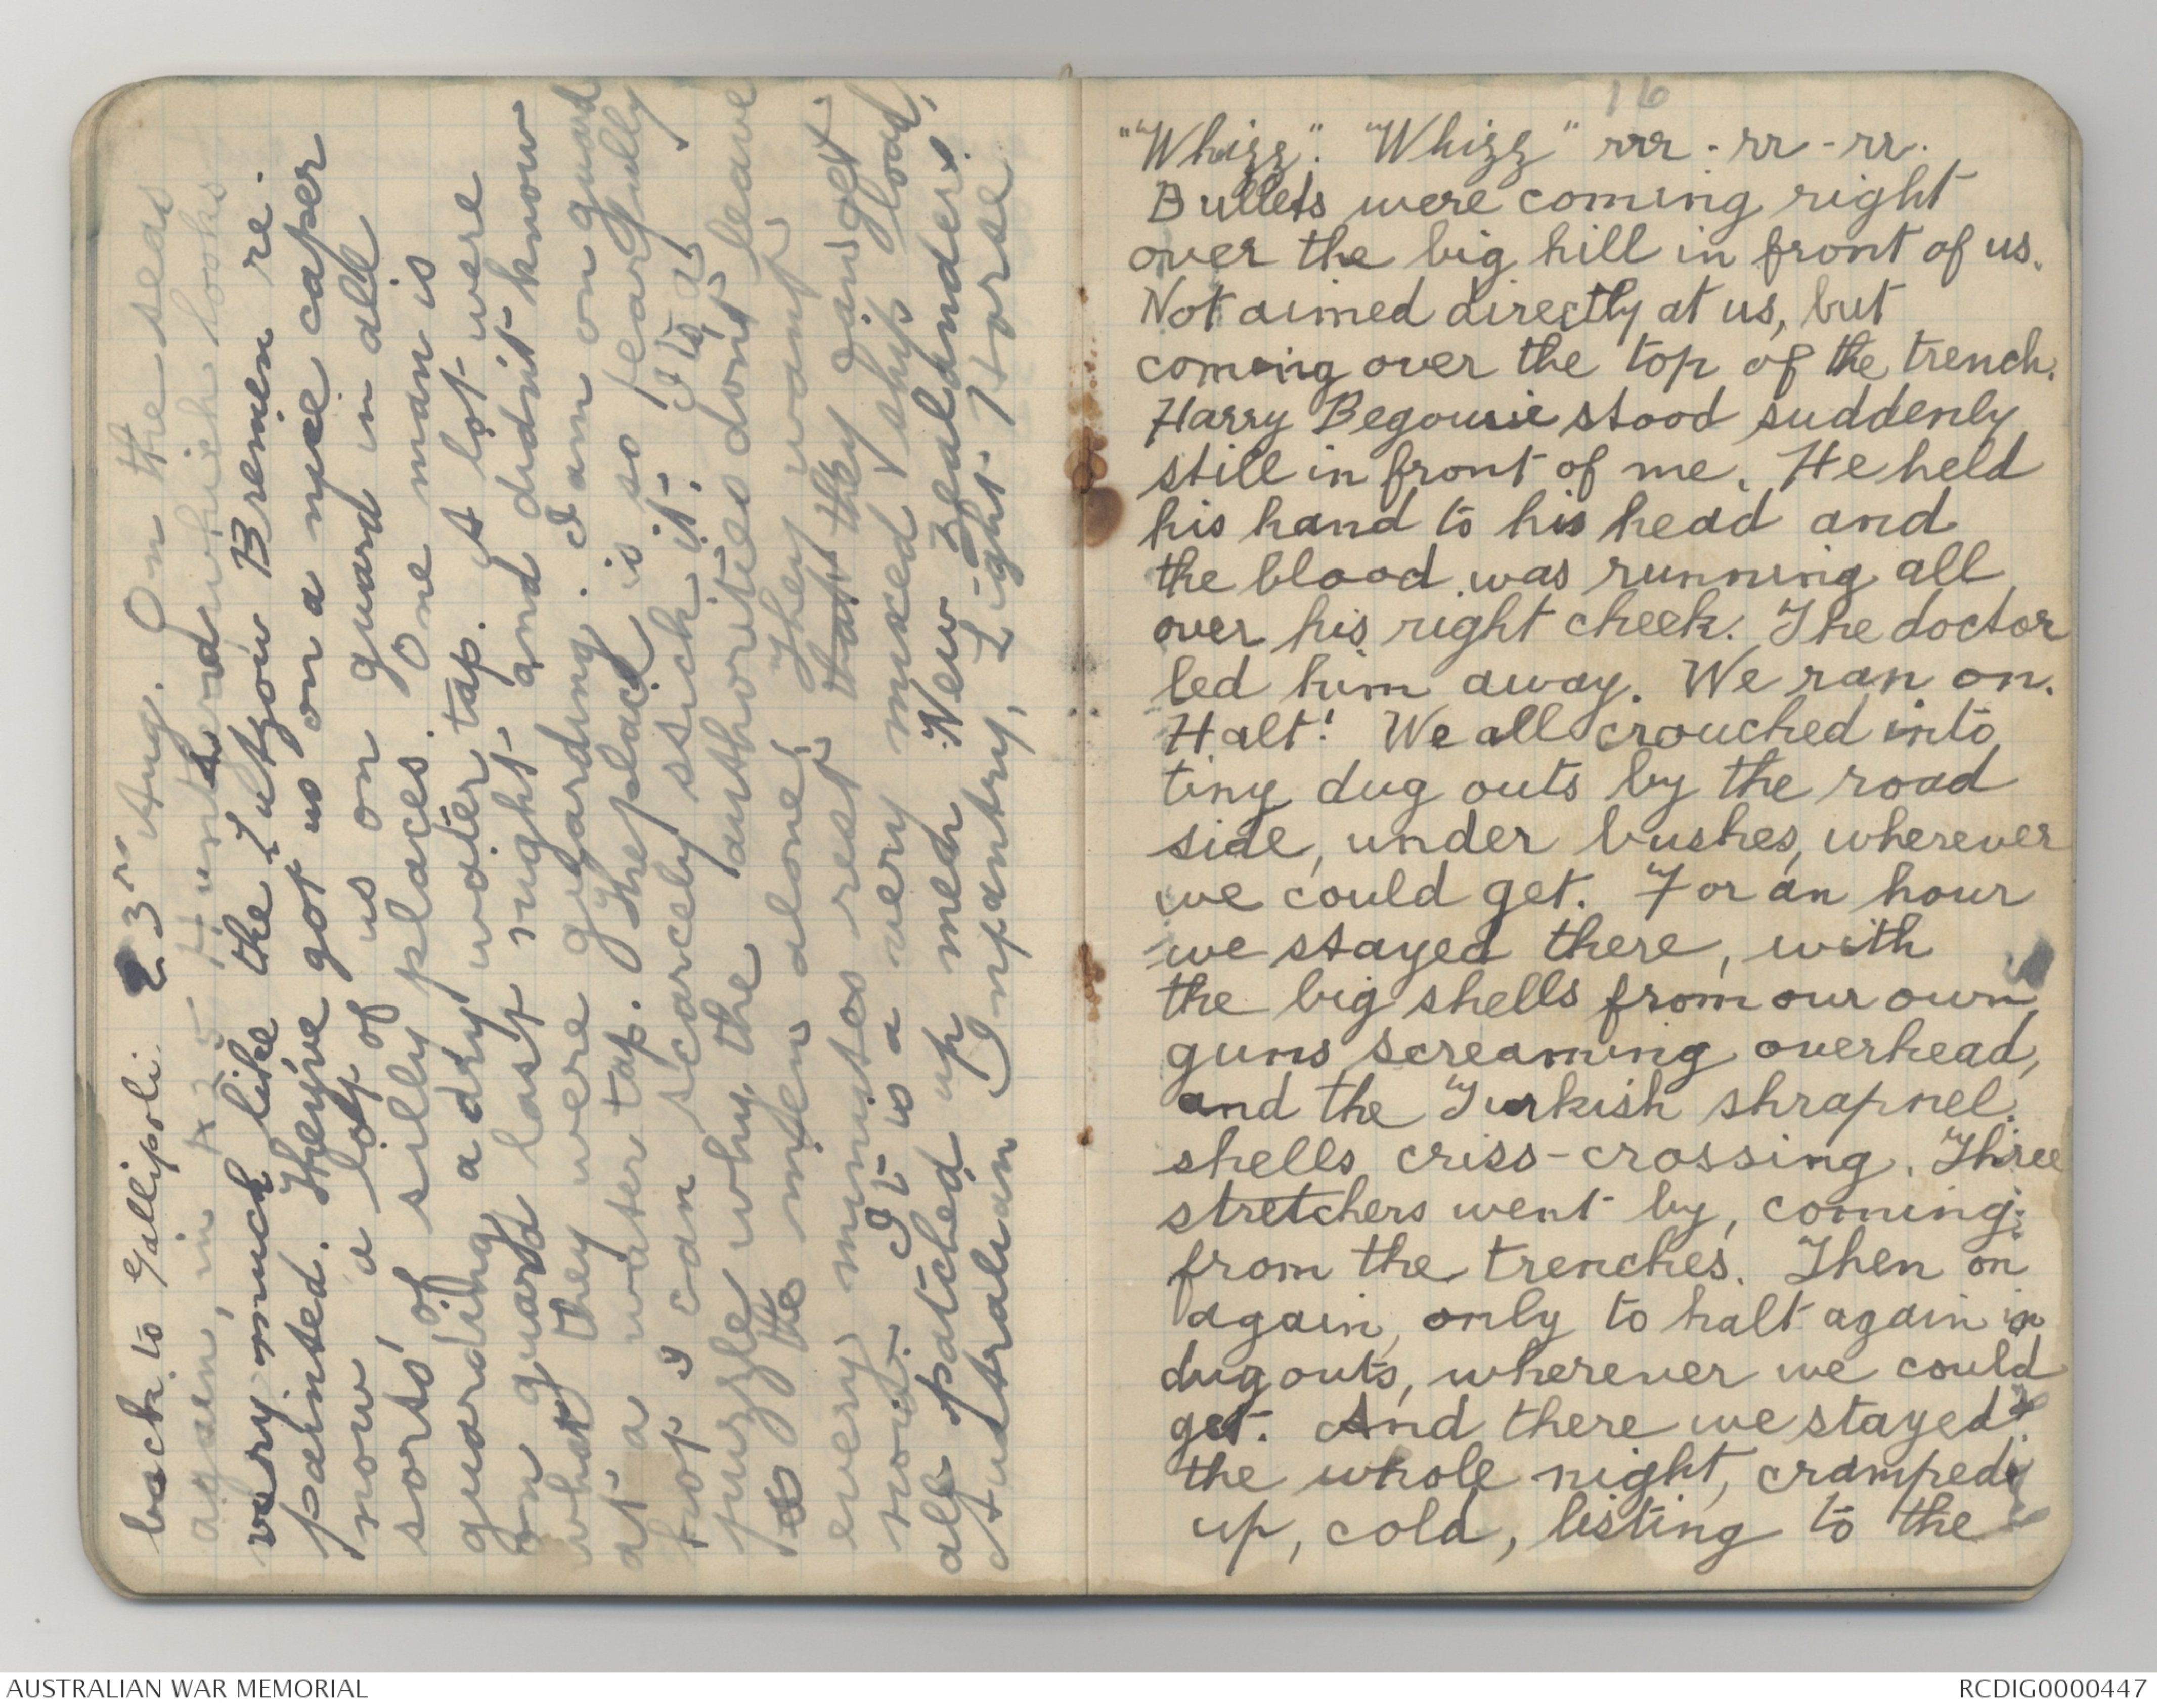 back to Gallipoli. 23rd Aug. On the seas
again, in A35 Huntsend which looks
very much like the Lutzow Bremen re.
painted. They've got us on a nice caper
now, a lot of us on guard in all
sorts of silly places. One man is
guarding a dry water tap. A lot were
on guard last night and didn't know
what they were guarding. I am on guard
at a water tap. The place is so fearfully
hot I can scarcely stick it. It's a
puzzle why the authorities dont leave
the men alone. They want
every minutes rest that they can get
now. It is a very mixed ship load,
all patched up men. New Zealanders.
Australian Infantry, Light Horse
16
"Whizz". "Whizz" rrr - rr - rr.
Bullets were coming right
over the big hill in front of us.
Not aimed directly at us, but
coming over the top of the trench.
Harry Begourie stood suddenly
still in front of me. He held
his hand to his head and
the blood was running all
over his right cheek. The doctor
led him away. We ran on.
Halt! We all crouched into
tiny dug outs by the road
side, under bushes, wherever
we could get. For an hour
we stayed there, with
the big shells from our own
guns screaming overhead,
and the Turkish shrapnel
shells criss-crossing. Three
stretchers went by, coming
from the trenches. Then on
again, only to halt again in
dug outs, wherever we could
get. And there we stayed
the whole night, cramped
up, cold, listing to the
AUSTRALIAN WAR MEMORIAL
RCDIG0000447